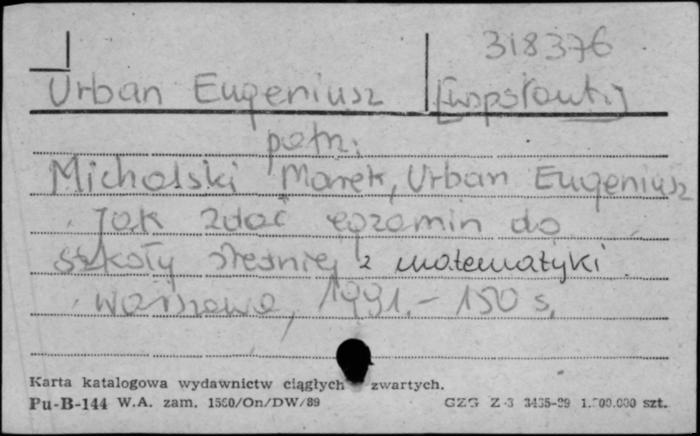 318376
Urban Eugeniusz [współaut.]
patrz:
Michalski Marek, Urban Eugeniusz
Jak zdać egzamin do
szkoły średniej z matematyki.
Warszawa, 1991. - 150 s.
Karta katalogowa wydawnictw ciągłych zwartych.
Pu-B-144 W.A. zam. 1560/On/DW/89 GZG Z-3 3435-89 1.500.000 szt.